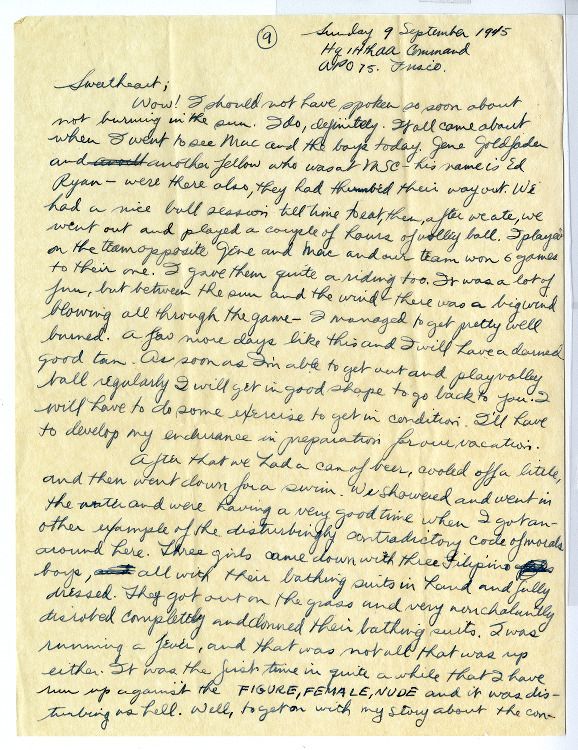 9
Sunday 9 September 1945
Hq 14th AA Command
APO 75. Frisco.
Sweetheart;
Wow! I should not have spoken so soon about
not burning in the sun. I do, definitely. It all came about
when I went to see Mac and the boys today. Gene Goldfaden
and another fellow who was at MSC - his name is Ed
Ryan - were there also, they had thumbed their way out. We
had a nice bull session till time to eat, then, after we ate, we
went out and played a couple of hours of volley ball. I played
on the team opposite Gene and Mac and our team won 6 games
to their one. I gave them quite a riding too. It was a lot of
fun, but between the sun and the wind - there was a big wind
blowing all through the game - I managed to get pretty well
burned. A few more days like this and I will have a darned
good tan. As soon as I'm able to get out and play volley
ball regularly I will get in good shape to go back to you. I
will have to do some exercise to get in condition. I'll have
to develop my endurance in preparation for our vacation.
After that we had a can of beer, cooled off a little,
and then went down for a swim. We showered and went in
the water and were having a very good time when I got an-
other example of the disturbingly contradictory code of morals
around here. Three girls came down with three Filipino
boys, all with their bathing suits in hand and fully
dressed. They got out on the grass and very nonchalantly
disrobed completely and donned their bathing suits. I was
running a fever, and that was not all that was up
either. It was the first time in quite a while that I have
run up against the FIGURE, FEMALE, NUDE and it was dis-
turbing as hell. Well, to get on with my story about the con-